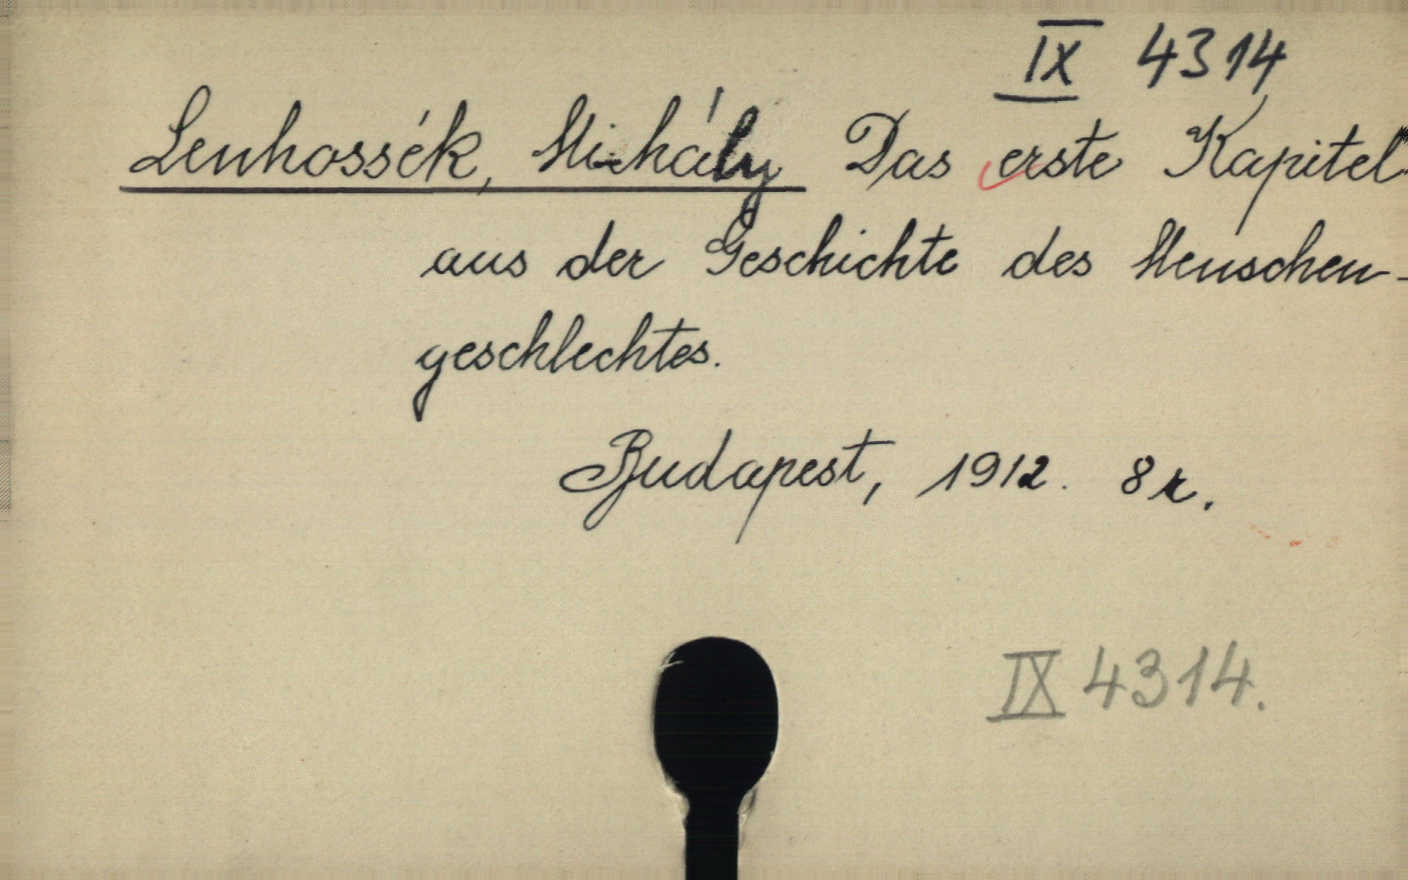 IX 4314
Lenhossék, Mihály Das erste Kapitel
aus der Geschichte des Menschen-
geschlechtes.
Budapest, 1912. 8r.
IX 4314.